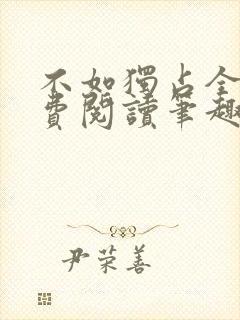 不如獨占全
費閱讀筆趣
尹荣善